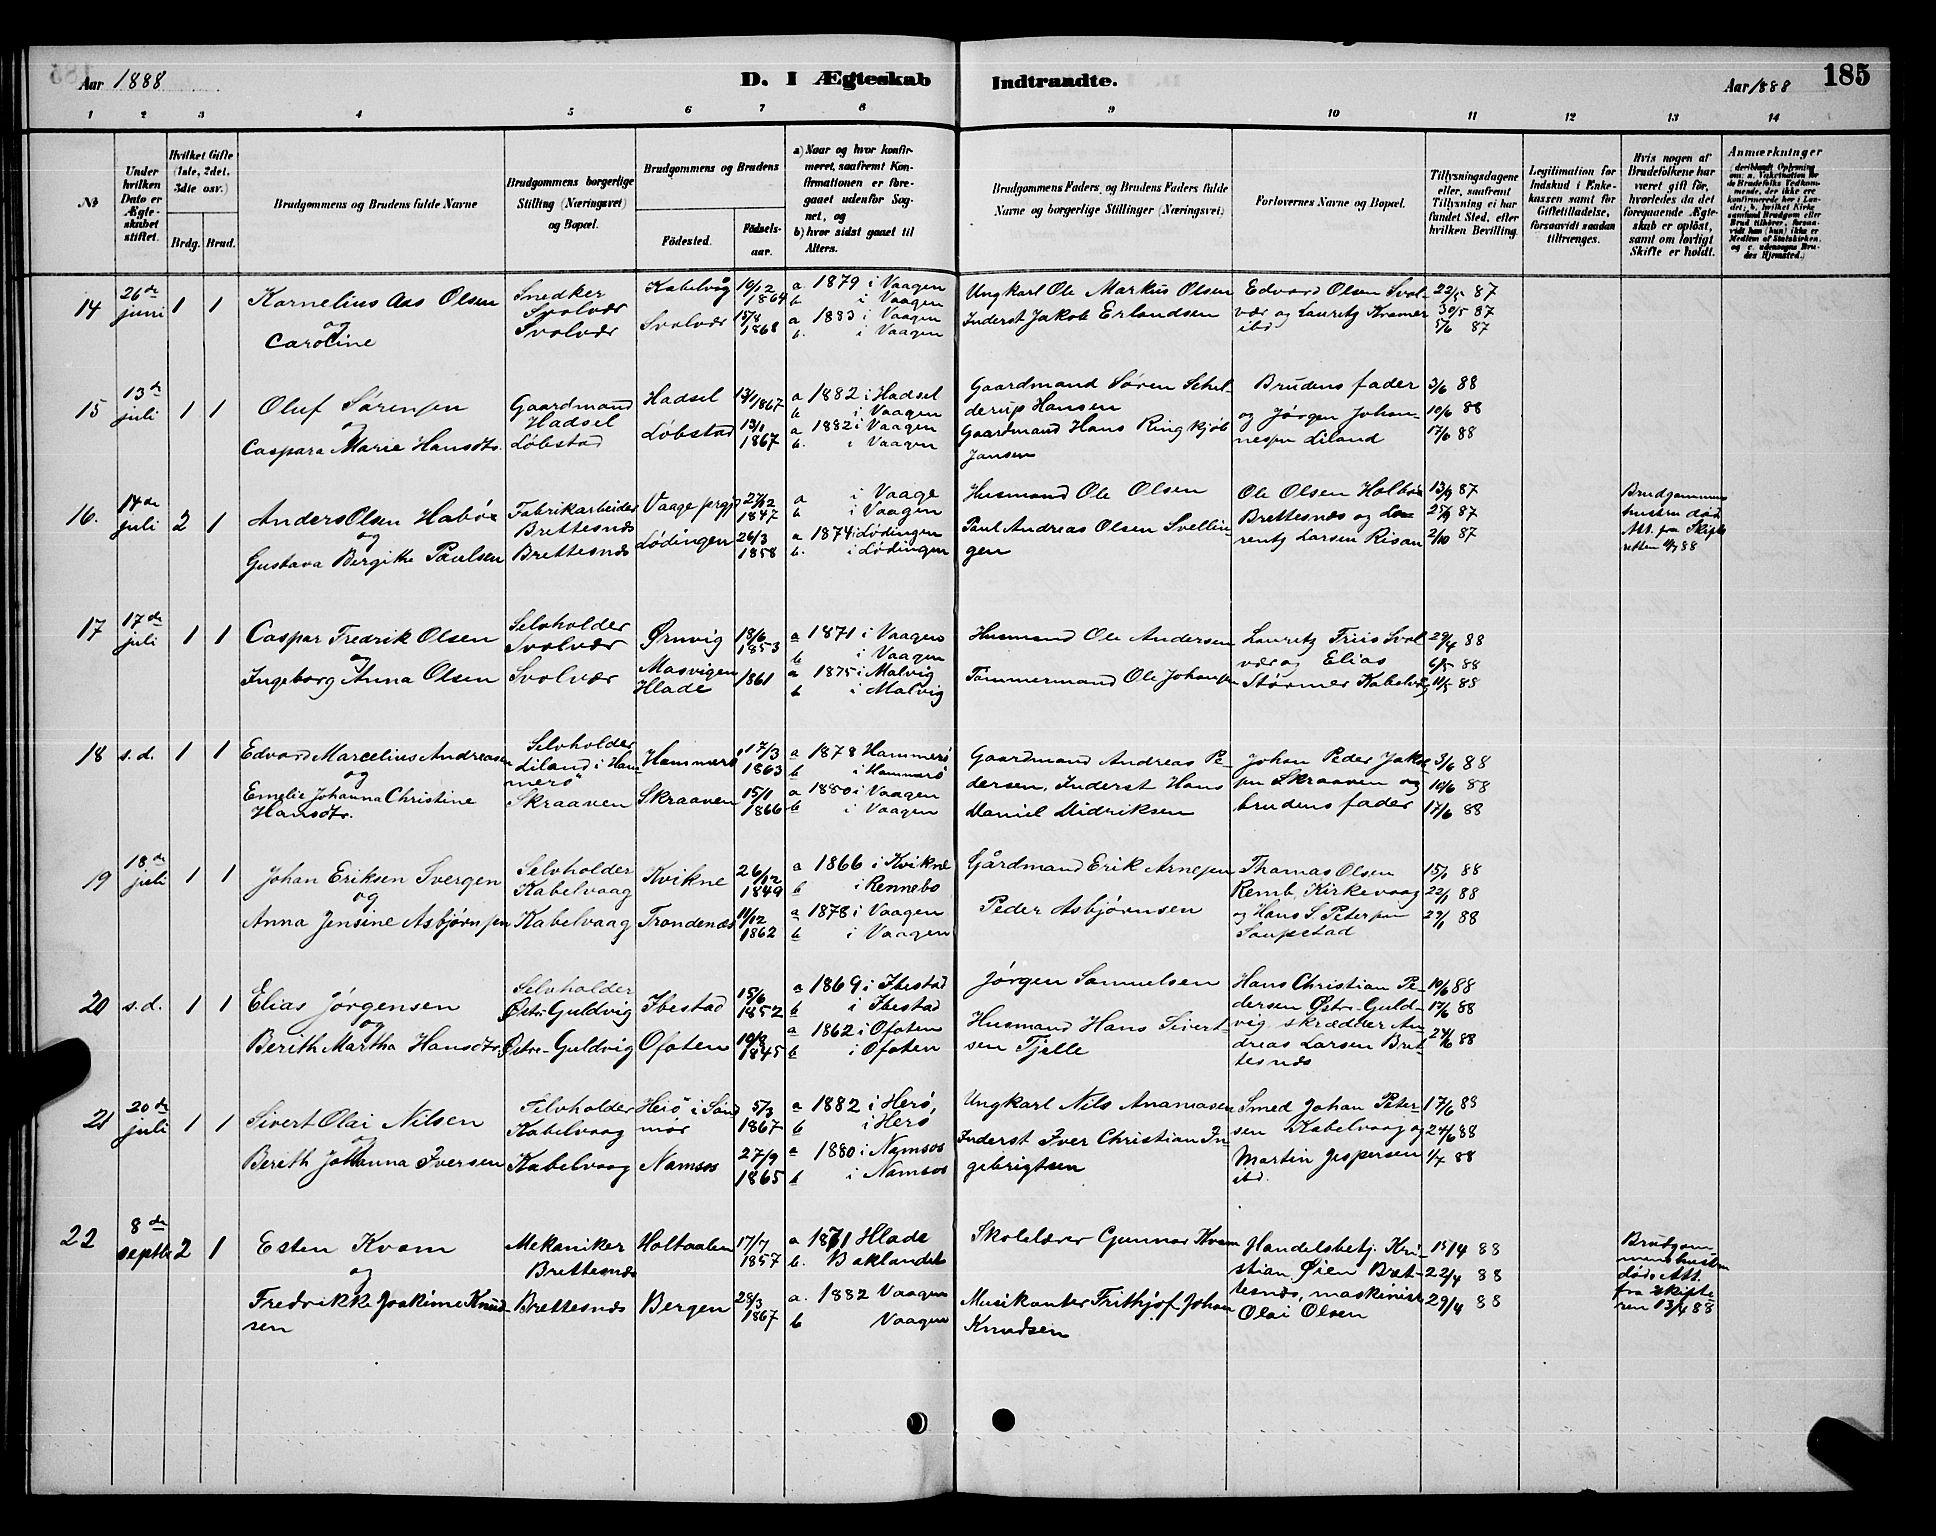 Aar 1888
D. I Ægteskab Indtraadte.
Aar 1888 185
1 2 3 4 5 6 7 8 9 10 11 12 13 14
No
Under hvilken Dato er Ægteskabet stiftet.
Hvilket Gifte (1ste, 2det, 3die osv.)
Brdg. Brud.
Brudgommens og Brudens fulde Navne
Brudgommens borgerlige Stilling (Næringsvei) og Bopæl.
Brudgommens og Brudens
Födested. Födsels-aar.
a) Naar og hvor konfirmeret, saafremt Konfirmationen er foregaaet udenfor Sognet, og
b) hvor sidst gaaet til Alters.
Brudgommens Faders, og Brudens Faders fulde Navne og borgerlige Stillinger (Næringsvei)
Forlovernes Navne og Bopæl.
Tillysningsdagene eller, saafremt Tillysning ei har fundet Sted, efter hvilken Bevilling.
Legitimation for Indskud i Enkekassen samt for Giftetilladelse, forsaavidt saadan tiltrænges.
Hvis nogen af Brudefolkene har været gift för, hvorledes da det foregaaende Ægteskab er oplöst, samt om lovligt Skifte er holdt.
Anmærkninger
14 26de juni 1 1
Kornelius Aas Olsen
og
Caroline
Snedker
Svolvær
Svolvær
Kabelvåg 19/12 1864
Svolvær 15/8 1868
a 1879 i Vaagen
b i Vaagen
a 1883 i Vaagen
b. i Vaagen
Ungkarl Ole Markus Olsen
Inderst Jakob Erlandsen
Edvard Olsen Svol-
vær og Lauritz Kramer
ibd
22/5 87
30/5 87
5/6 87
15 13de juli 1 1
Oluf Sørensen
og
Caspara Marie Hansdtr.
Gaardmand
Hadsel
Løbstad
Hadsel 1867
Løbstad 13/1 1867
a 1882 i Hadsel
b i Vaagen
a 1882 i Vaagen
b. i Vaagen
Gaardmand Søren Schil-
derup Hansen
Gaardmand Hans Ringkjøb
Jansen
Brudens fader
og Jørgen Johan-
nesen Liland
3/6 88
10/6 88
17/6 88
16. 14de juli 2 1
Anders Olsen Habøe
og
Gustava Bergitte Paulsen
Fabrikarbeider
Brettesnæs
Brettesnæs
Vaage prgjd 27/12 1847
Lødingen 26/3 1858
a i Vaage
b i Vaagen
a 1874 i Lødingen
b. i Lødingen
Husmand Ole Olsen
Paul Andreas Olsen Svellin-
gen
Ole Olsen Holbøe
Brettesnæs og Lau-
rentz Larsen Risan
13/9 87
25/9 87
2/10 87
Brudgommens
hustru død
Att. fra Skifte
retten 88
17 17de juli 1 1
Caspar Fredrik Olsen
og
Ingeborg Anna Olsen
Selvholder
Svolvær
Svolvær
Ørnvig 18/6 1853
Masvigen
Hlade 1861
a 1871 i Vaagen
b i Vaagen
a 1875 i Malvig
b i Malvig
Husmand Ole Andersen
Tømmermand Ole Johansen
Lauritz Friis Svol
vær og Elias
Størmer Kabelvåg
29/4 88
6/5 88
88
18 s.d. 1 1
Edvard Marcelius Andreasen
og
Emelie Johanna Christine
Hansdtr.
Selvholder
Liland i Ham
merö
Skraaven
Hammerö 17/3 1863
Skraaven 15/1 1866
a 1878 Hammerö
b i Hammerö
a 1880 i Vaagen
b i Vaagen
Gaardmand Andreas Pe-
dersen, Inderst Hans
Daniel Didriksen
Johan Peder Jakob-
sen Skraaven og
brudens fader
3/6 88
10/6 88
17/6 88
19 18de juli 1 1
Johan Eriksen Svergen
og
Anna Jensine Asbjørnsen
Selvholder
Kabelvaag
Kabelvaag
Kvikne 26/12 1849
Trondenæs 11/12 1862
a 1866 i Kvikne
b i Rennebo
a 1878 i Vaagen
b i Vaagen
Gårdmand Erik Arnesen
Peder Asbjørnsen
Thomas Olsen
Remb, Kirkevaag
og Hans S. Petersen
Saupstad
15/1 88
22/1 88
29/1 88
20 s.d. 1 1
Elias Jørgensen
og
Berith Martha Hansdtr.
Selvholder
Østr. Guldvig
Østr. Guldvig
Ibestad 15/6 1852
Ofoten 19/8 1845
a 1869 i Ibestad
b i Ibestad
a 1862 i Ofoten
b i Ofoten
Jørgen Samuelsen
Husmand Hans Sivert-
sen Tjelle
Hans Christian Pe-
dersen Østr. Guld-
vig skrædder An-
dreas Larsen Bret-
tesnæs
10/6 88
17/6 88
24/6 88
21 20de juli 1 1
Sivert Olai Nilsen
og
Berith Johanna Iversen
Selvholder
Kabelvaag
Kabelvaag
Herö i Sönd
mör 5/3 1867
Namsos 27/9 1865
a 1882 i Herö,
b i Herö
a 1880 i Namsos
b i Namsos
Ungkarl Nils Ananiasen
Inderst Iver Christian In-
gebrigtsen
Smed Johan Peter-
sen Kabelvaag og
Martin Jespersen
ibd.
17/6 88
24/6 88
1/7 88
22 8de septbr 2 1
Esten Kvam
og
Fredrikke Joakime Knud-
sen
Mekaniker
Brettesnæs
Brettesnæs
Holtaalen 17/7 1857
Bergen 28/3 1867
a 1871 Hlade
b. Baklandet
a. 1882 Vaagen
b Vaagen
Skolelærer Gunnar Kvam
Musikanter Frithjof Johan
Knudsen
Handelsbetj. Kri-
stian Øien Bret-
tesnæs, maskinist
Olai Olsen
15/4 88
22/4 88
29/4 88
Brudgom-
mens hustru
død. Att.
fra skifte-
ren 13/4 88